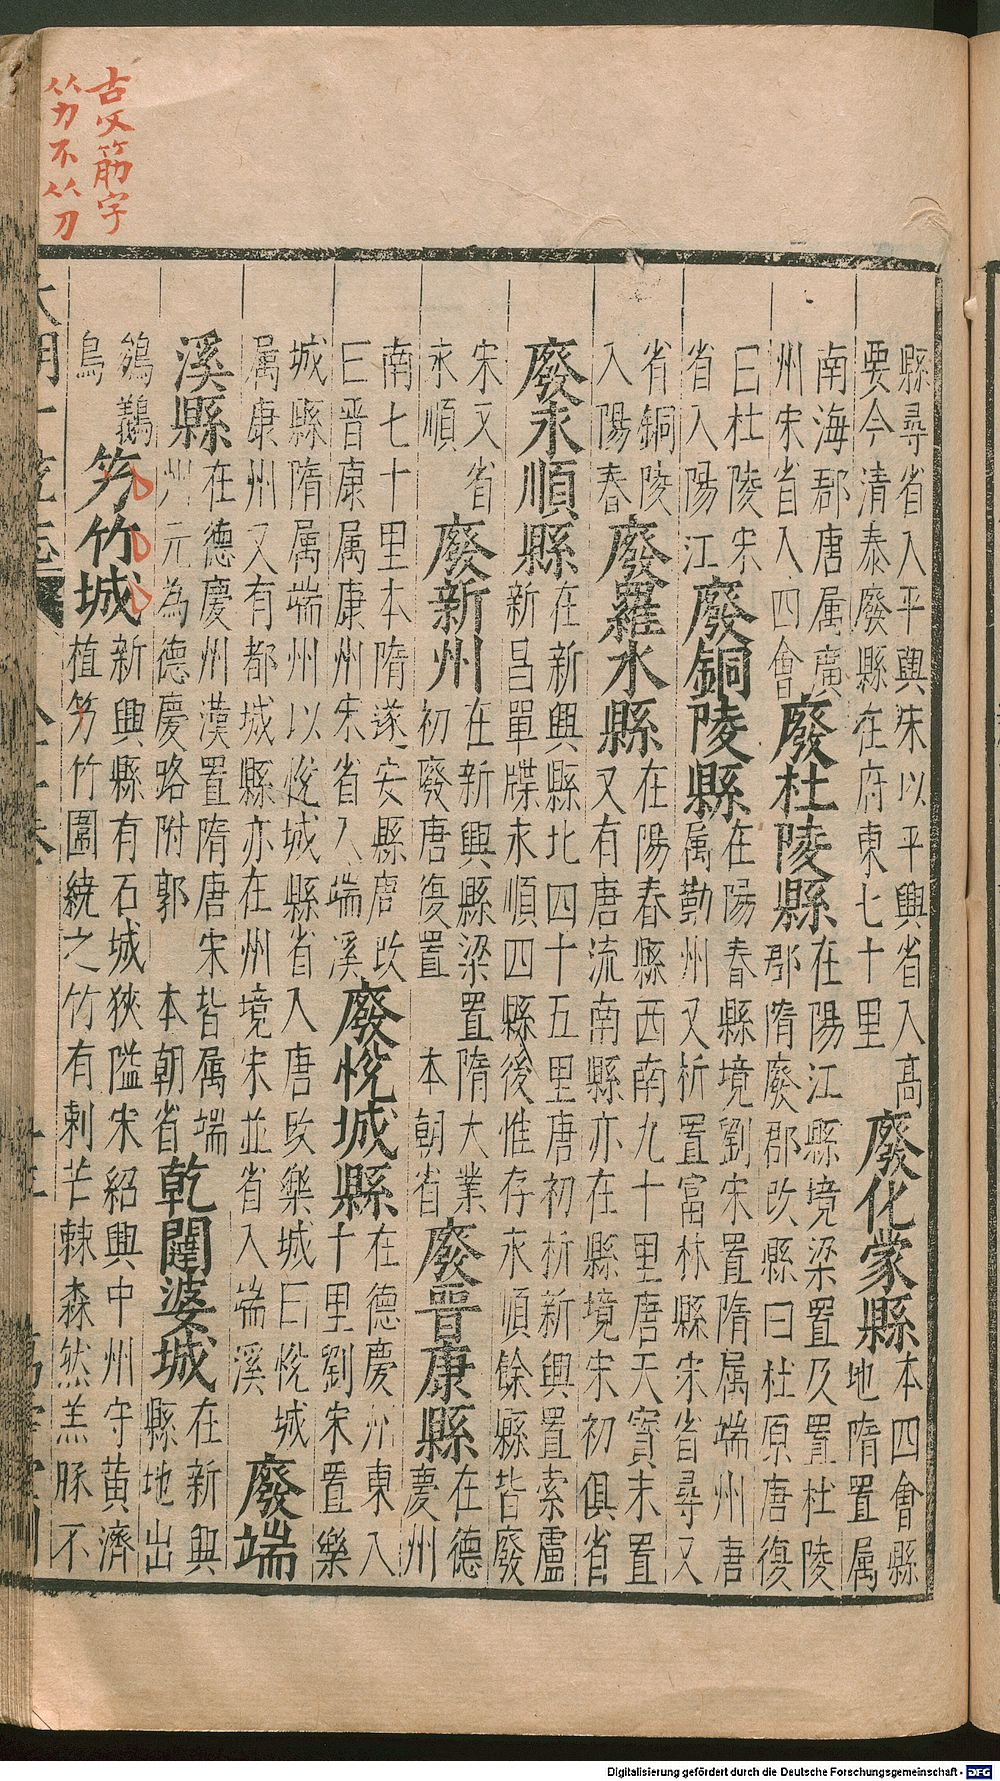 古文筋字
竻不
縣尋省入平輿宋以平輿省入高
要今清泰廢縣在府東七十里
廢化蒙縣
本四會縣
地隋置属
南海郡唐属廣
州宋省入四會
廢杜陵縣
在陽江縣境梁置及置杜陵
郡隋廢郡改縣曰杜原唐復
曰杜陵宋
省入陽江
廢銅陵縣
在陽春縣境劉宋置隋属端州唐
属勤州又析置富林縣宋省尋又
省銅陵
入陽春
廢羅水縣
在陽春縣西南九十里唐天寳末置
又有唐流南縣亦在縣境宋初俱省
廢永順縣
在新興縣北四十五里唐初析新興置索盧
新昌單牒永順四縣後惟存永順餘縣皆廢
宋又省
永順
廢新州
在新興縣梁置隋大業
初廢唐復置 本朝省
廢晉康縣
在德
慶州
南七十里本隋遂安縣唐改
曰晉康属康州宋省入端溪
廢悅城縣
在德慶州東八
十里劉宋置樂
城縣隋属端州以悅城縣省入唐改樂城曰悅城
属康州又有都城縣亦在州境宋並省入端溪
廢端
溪縣
在德慶州漢置隋唐宋皆属端
州元為德慶路附郭 本朝省
乾闥婆城
在新興
縣地出
鳥
竻竹城
新興縣有石城狹隘宋紹興中州守黄濟
植竻竹圍繞之竹有刺芒棘森然羔豚不
Digitalisierung gefördert durch die Deutsche Forschungsgemeinschaft - DFG